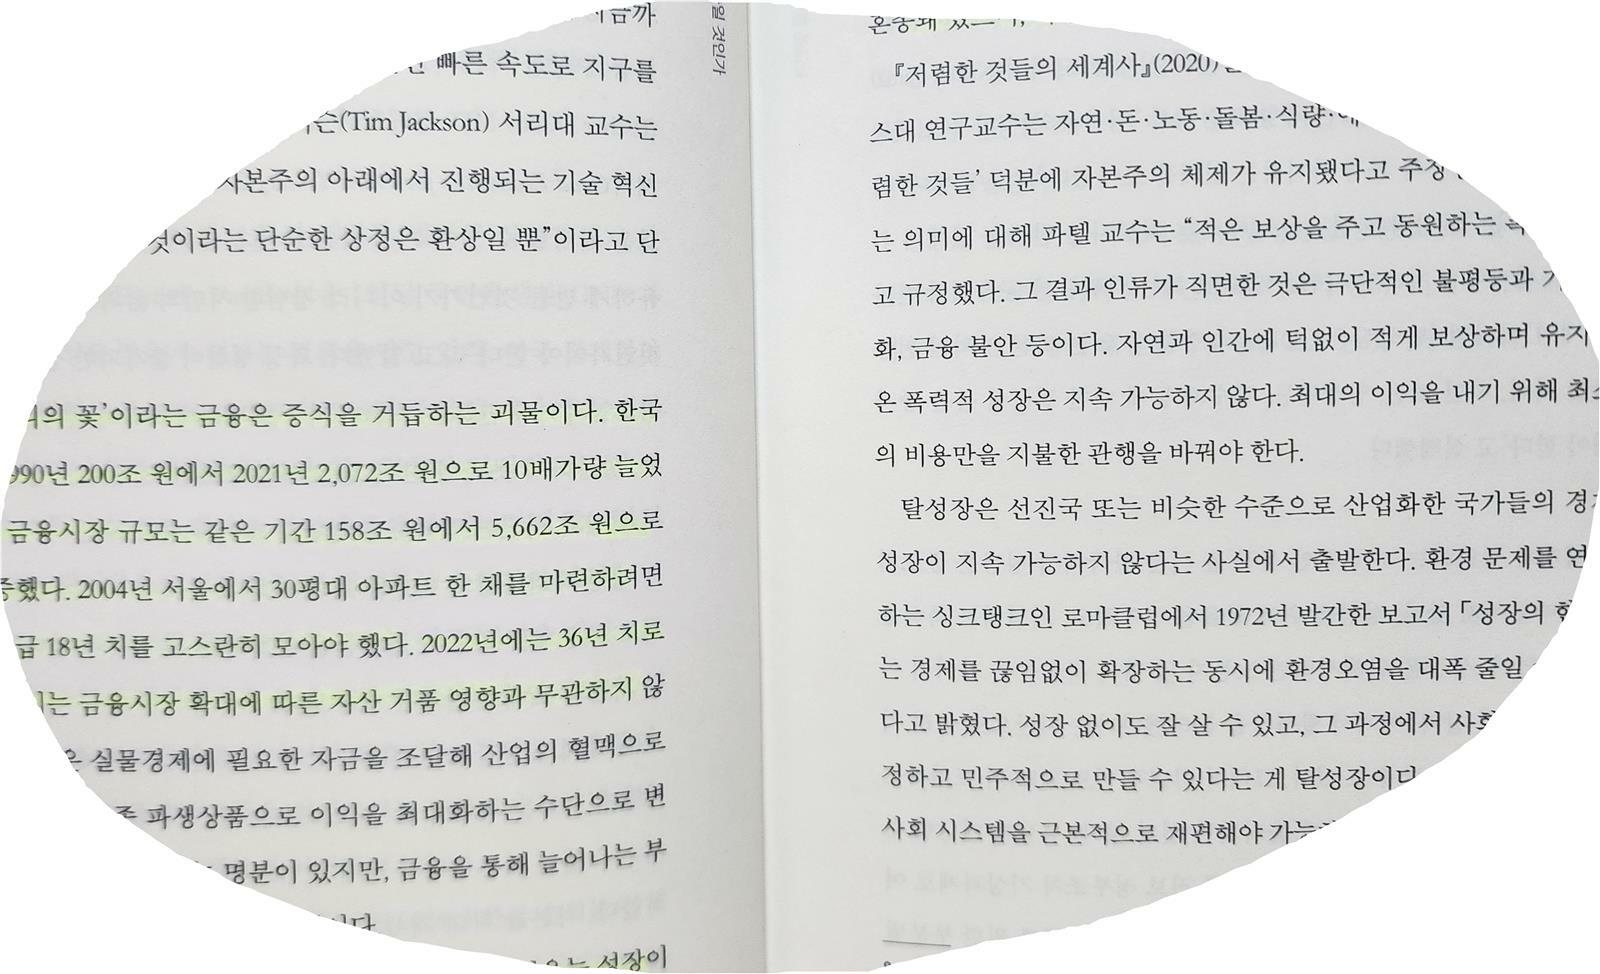 빠른 속도로 지구를
(Tim Jackson) 서리대 교수는
자본주의 아래에서 진행되는 기술 혁신
것이라는 단순한 상정은 환상일 뿐”이라고 단
꽃’이라는 금융은 증식을 거듭하는 괴물이다. 한국
200조 원에서 2021년 2,072조 원으로 10배가량 늘었
금융시장 규모는 같은 기간 158조 원에서 5,662조 원으로
2004년 서울에서 30평대 아파트 한 채를 마련하려면
급 18년 치를 고스란히 모아야 했다. 2022년에는 36년 치로
금융시장 확대에 따른 자산 거품 영향과 무관하지 않
실물경제에 필요한 자금을 조달해 산업의 혈맥으로
파생상품으로 이익을 최대화하는 수단으로 변
명분이 있지만, 금융을 통해 늘어나는 부
성장이
것인가
『저렴한 것들의 세계사』(2020)
스대 연구교수는 자연·돈·노동·돌봄·식량·
렴한 것들’ 덕분에 자본주의 체제가 유지됐다고 주장
는 의미에 대해 파텔 교수는 “적은 보상을 주고 동원하는
고 규정했다. 그 결과 인류가 직면한 것은 극단적인 불평등과
화, 금융 불안 등이다. 자연과 인간에 턱없이 적게 보상하며 유지
온 폭력적 성장은 지속 가능하지 않다. 최대의 이익을 내기 위해 최소
의 비용만을 지불한 관행을 바꿔야 한다.
탈성장은 선진국 또는 비슷한 수준으로 산업화한 국가들의
성장이 지속 가능하지 않다는 사실에서 출발한다. 환경 문제를 연
하는 싱크탱크인 로마클럽에서 1972년 발간한 보고서 「성장의
는 경제를 끊임없이 확장하는 동시에 환경오염을 대폭 줄일
다고 밝혔다. 성장 없이도 잘 살 수 있고, 그 과정에서 사회
정하고 민주적으로 만들 수 있다는 게 탈성장이다
사회 시스템을 근본적으로 재편해야